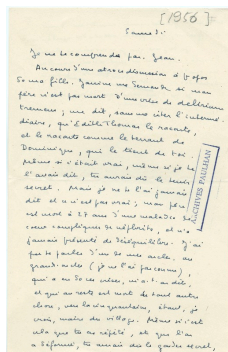 [1956]
Samedi
Je ne te comprends pas. Jean.
Au cours d'une atroce discussion à propos
de ma fille, Janine me demanda si mon
père n'est pas mort d'une crise de delirium
tremens; me dit, sans me citer l'intermé-
diaire, qu'Edith Thomas le raconte,
et le raconte comme le tenant de
Dominique, qui le tient de toi.
Même si c'était vrai, même si je te
l'avais dit, tu aurais dû le tenir
secret. Mais je ne te l'ai jamais
dit et ce n'est pas vrai; mon père
est mort à 27 ans d'une maladie de
cœur compliquée de néphrite, et n'a
jamais présenté de déséquilibre. J'ai
pu te parler d'un de mes
(je ne l'ai pas connu),
qui a eu de ces crises, m'a-t-on dit,
et qui au reste est mort de tout autre
chose, vers la cinquantaine, étant, je
crois, maire du village. Même si c'est
cela que tu as répété, et que l'on
a déformé, tu aurais dû garder secret,
ARCHIVES PAULHAN